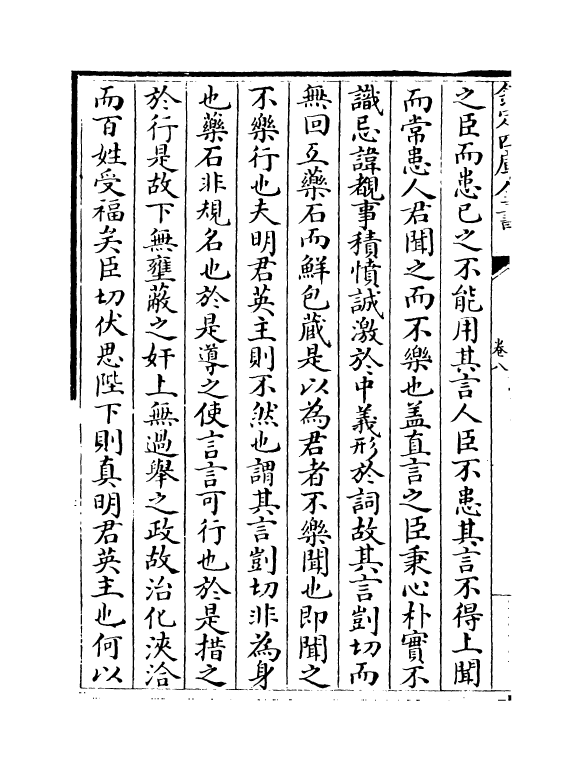 欽定四庫全書
卷八
之臣而患已之不能用其言人臣不患其言不得上聞
而常患人君聞之而不樂也盖直言之臣秉心朴實不
識忌諱覩事積憤誠激於中義形於詞故其言剴切而
無回互藥石而鮮包蔵是以為君者不樂聞也即聞之
不樂行也夫明君英主則不然也謂其言剴切非為身
也藥石非規名也於是導之使言言可行也於是措之
於行是故下無壅蔽之奸上無過舉之政故治化浹洽
而百姓受福矣臣切伏思陛下則真明君英主也何以